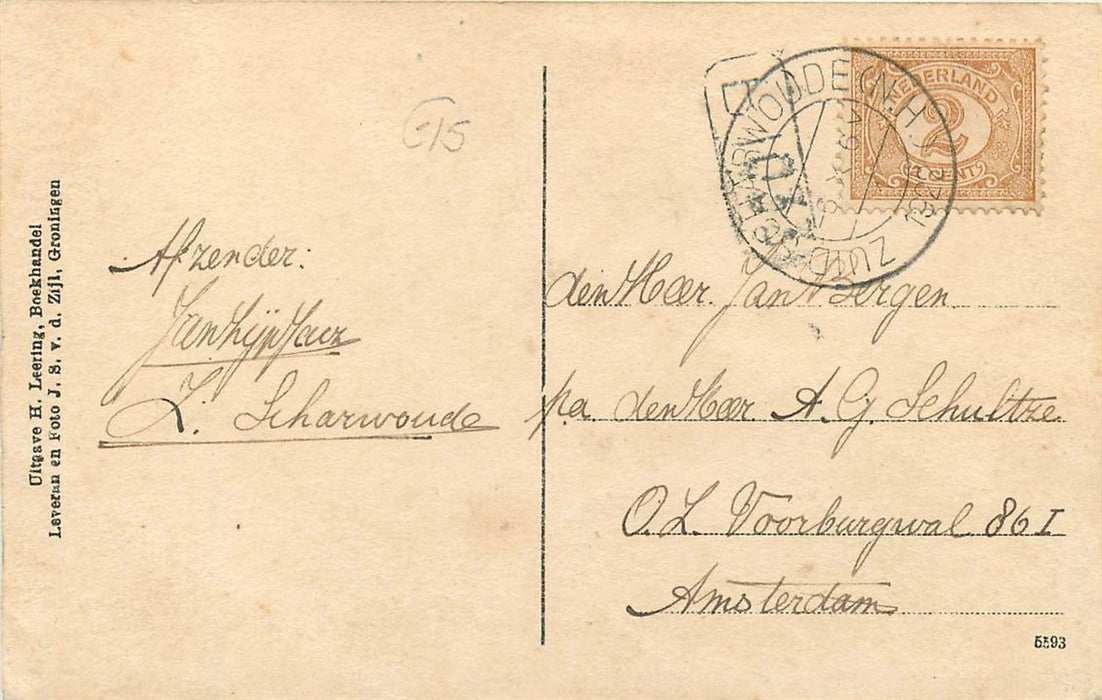 Uitgave H. Leering, Boekhandel
Leveran en Foto J. S. v. d. Zijl, Groningen
G15
Afzender:
Z. Scharwoude
NEDERLAND
2
CENT
ZUIDSCHARWOUDE (N.H.)
den Heer Jan Bergen
pa. den Heer A. G. Schultze
O.Z. Voorburgwal 86 I
Amsterdam
5593